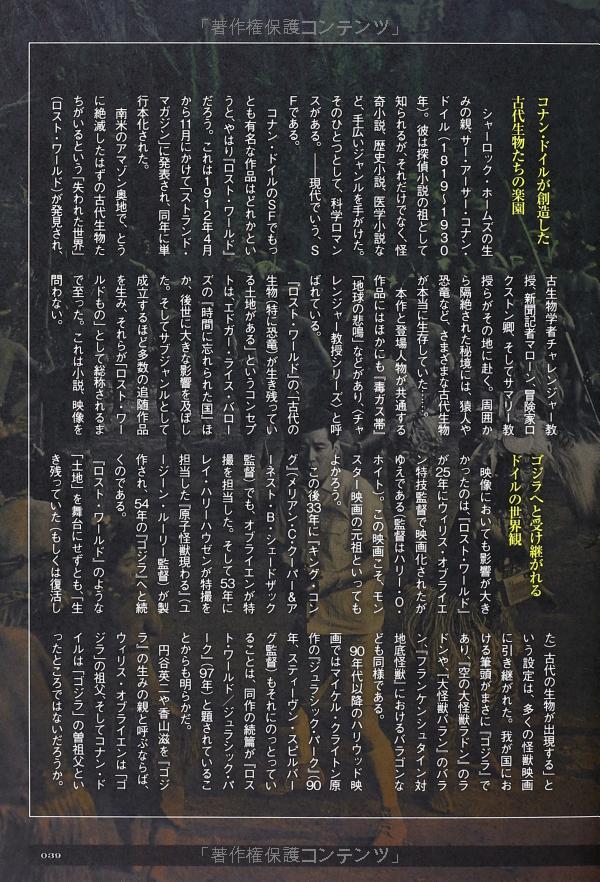 「著作権保護コンテンツ」
コナン・ドイルが創造した
古代生物たちの楽園
シャーロック・ホームズの生
みの親、サー・アーサー・コナン・
ドイル（1819〜1930
年）。彼は探偵小説の祖として
知られるが、それだけでなく、怪
奇小説、歴史小説、医学小説な
ど、手広いジャンルを手がけた。
そのひとつとして、科学ロマン
スがある。――現代でいう、S
Fである。
コナン・ドイルのSFでもっ
とも有名な作品はどれかとい
うと、やはり『ロスト・ワールド』
だろう。これは1912年4月
から11月にかけて「ストランド・
マガジン」に発表され、同年に単
行本化された。
南米のアマゾン奥地で、とう
に絶滅したはずの古代生物た
ちがいるという「失われた世界」
（ロスト・ワールド）が発見され、
古生物学者チャレンジャー教
授、新聞記者マローン、冒険家ロ
クストン卿、そしてサマリー教
授らがその地に赴く。周囲か
ら隔絶された秘境には、猿人や
恐竜など、さまざまな古代生物
が本当に生存していた……。
本作と登場人物が共通する
作品にはほかにも『毒ガス帯』
『地球の悲鳴』などがあり、〈チャ
レンジャー教授シリーズ〉と呼
ばれている。
『ロスト・ワールド』の、「古代の
生物（特に恐竜）が生き残ってい
る土地がある」というコンセプ
トは、エドガー・ライス・バロー
ズの『時間に忘れられた国』ほ
か、後世に大きな影響を及ぼし
た。そしてサブジャンルとして
成立するほど多数の追随作品
を生み、それらが「ロスト・ワー
ルドもの」として総称されるま
で至った。これは小説、映像を
問わない。
ゴジラへと受け継がれる
ドイルの世界観
映像においても影響が大き
かったのは、『ロスト・ワールド』
が25年にウィリス・オブライエ
ン特技監督で映画化されたが
ゆえである（監督はハリー・O・
ホイト）。この映画こそ、モン
スター映画の元祖といっても
よかろう。
この後33年に『キング・コン
グ』（メリアン・C・クーパー&ア
ーネスト・B・シェードザック
監督）でも、オブライエンが特
撮を担当した。そして53年に
レイ・ハリーハウゼンが特撮を
担当した『原子怪獣現わる』（ユ
ージーン・ルーリー監督）が製
作され、54年の『ゴジラ』へと続
くのである。
『ロスト・ワールド』のような
「土地」を舞台にせずとも、「生
き残っていた（もしくは復活し
た）古代の生物が出現する」と
いう設定は、多くの怪獣映画
に引き継がれた。我が国にお
ける筆頭がまさに『ゴジラ』で
あり、『空の大怪獣ラドン』のラ
ドンや、『大怪獣バラン』のバラ
ン、『フランケンシュタイン対
地底怪獣』におけるバラゴンな
ども同様である。
90年代以降のハリウッド映
画ではマイケル・クライトン原
作の『ジュラシック・パーク』（90
年、スティーヴン・スピルバー
グ監督）もそれにのっとってい
ることは、同作の続篇が『ロス
ト・ワールド／ジュラシック・パ
ーク』（97年）と題されているこ
とからも明らかだ。
円谷英二や香山滋を『ゴジ
ラ』の生みの親と呼ぶならば、
ウィリス・オブライエンは『ゴ
ジラ』の祖父、そしてコナン・ド
イルは『ゴジラ』の曽祖父とい
ったところではないだろうか。
039
「著作権保護コンテンツ」